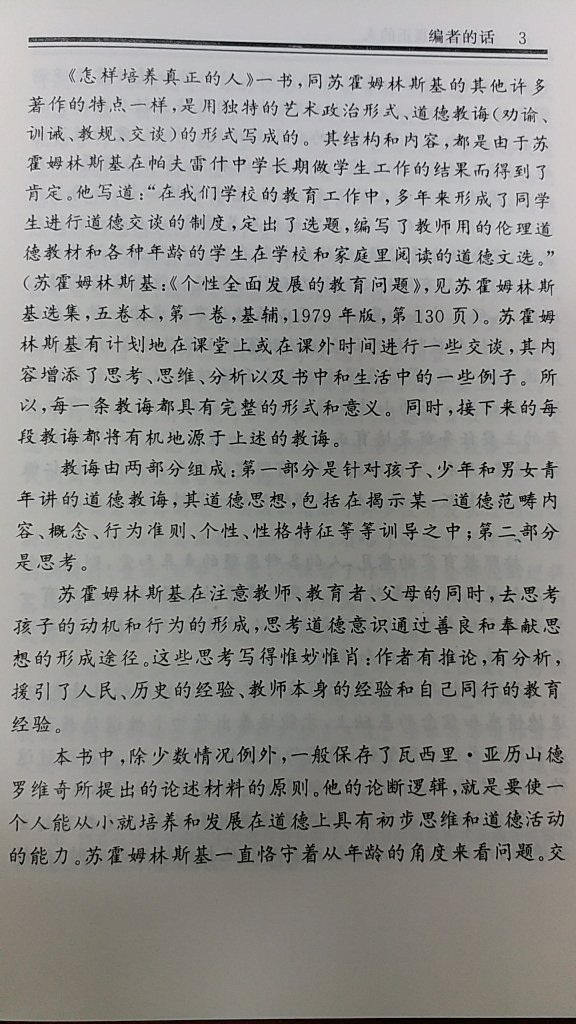 编者的话 3
《怎样培养真正的人》一书,同苏霍姆林斯基的其他许多
著作的特点一样,是用独特的艺术政治形式、道德教诲(劝谕、
训诫、教规、交谈)的形式写成的。其结构和内容,都是由于苏
霍姆林斯基在帕夫雷什中学长期做学生工作的结果而得到了
肯定。他写道:“在我们学校的教育工作中,多年来形成了同学
生进行道德交谈的制度,定出了选题,编写了教师用的伦理道
德教材和各种年龄的学生在学校和家庭里阅读的道德文选。”
(苏霍姆林斯基:《个性全面发展的教育问题》,见苏霍姆林斯
基选集,五卷本,第一卷,基辅,1979年版,第130页)。苏霍姆
林斯基有计划地在课堂上或在课外时间进行一些交谈,其内
容增添了思考、思维、分析以及书中和生活中的一些例子。所
以,每一条教诲都具有完整的形式和意义。同时,接下来的每
段教诲都将有机地源于上述的教诲。
教诲由两部分组成:第一部分是针对孩子、少年和男女青
年讲的道德教诲,其道德思想,包括在揭示某一道德范畴内
容、概念、行为准则、个性、性格特征等等训导之中;第二部分
是思考。
苏霍姆林斯基在注意教师、教育者、父母的同时,去思考
孩子的动机和行为的形成,思考道德意识通过善良和奉献思
想的形成途径。这些思考写得惟妙惟肖:作者有推论,有分析,
援引了人民、历史的经验、教师本身的经验和自己同行的教育
经验。
本书中,除少数情况例外,一般保存了瓦西里·亚历山德
罗维奇所提出的论述材料的原则。他的论断逻辑,就是要使一
个人能从小就培养和发展在道德上具有初步思维和道德活动
的能力。苏霍姆林斯基一直恪守着从年龄的角度来看问题。交